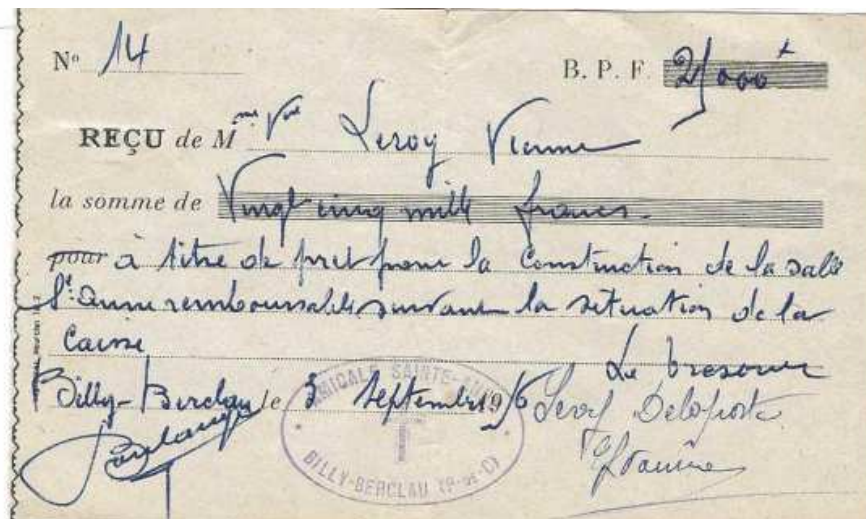 Nº 14 B. P. F. 25000
REÇU de M me Vve Leroy Vienne
la somme de Vingt cinq mille francs
pour à titre de pret pour la Construction de la Salle
Ste Anne remboursables suivant la situation de la
Caisse
Le tresorier
Billy-Berclau le 3 Septembre 1956 Leroy Delaporte
AMICALE SAINTE-ANNE
BILLY-BERCLAU (P-de-C)